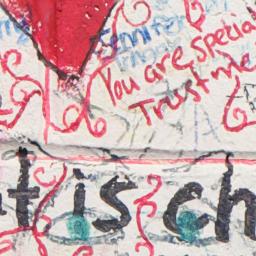 Jennifer
You are special
Trust me
t is ch